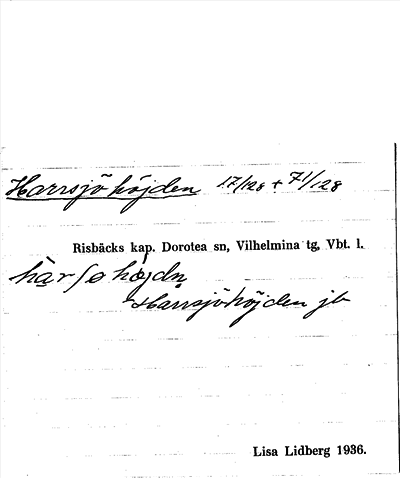 Harrsjöhöjden 17/128 + 71/128
Risbäcks kap. Dorotea sn, Vilhelmina tg, Vbt. l.
Harrsjöhöjden jb
Lisa Lidberg 1936.